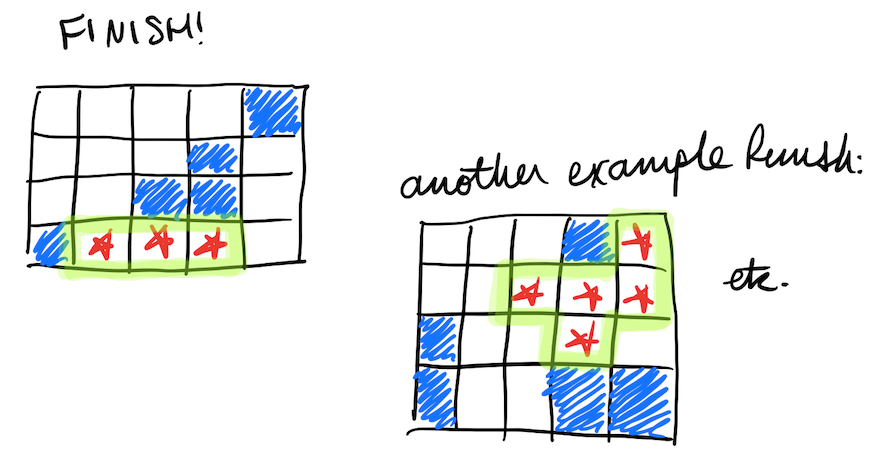 FINISH!
another example finish:
etc.